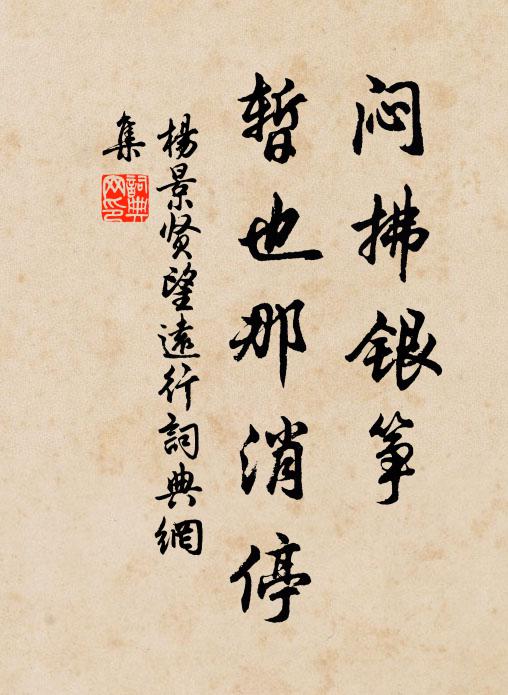 闷拂银筝
暂也那消停
杨景贤望远行词典网
集
詞典
网印